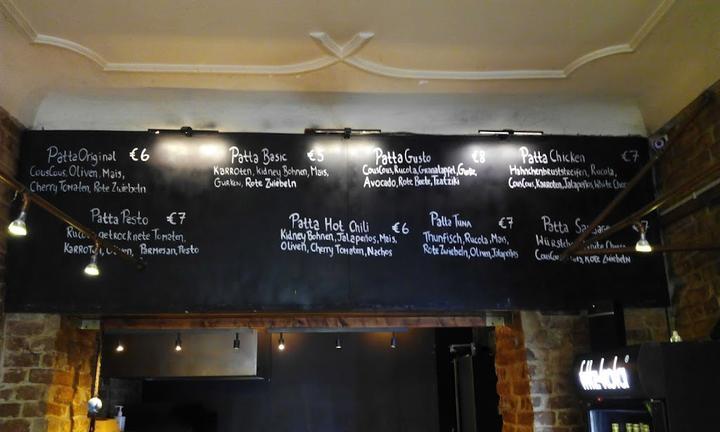 Patta Original €6
CousCous, Oliven, Mais,
Cherry Tomaten, Rote Zwiebeln
Patta Basic €5
Karroten, Kidney Bohnen, Mais,
Gurken, Rote Zwiebeln
Patta Gusto €8
CousCous, Rucola, Granatapfel, Gurke,
Avocado, Rote Beete, Tzatziki
Patta Chicken €7
Hähnchenbruststreifen, Rucola,
CousCous, Karroten, Jalapeños, White
Patta Pesto €7
Rucola, getrocknete Tomaten,
Karroten, Oliven, Parmesan, Pesto
Patta Hot Chili €6
Kidney Bohnen, Jalapeños, Mais,
Oliven, Cherry Tomaten, Nachos
Patta Tuna €7
Thunfisch, Rucola, Mais,
Rote Zwiebeln, Oliven, Jalapeños
Patta
White
CousCous, Rote Zwiebeln
fritz-kola